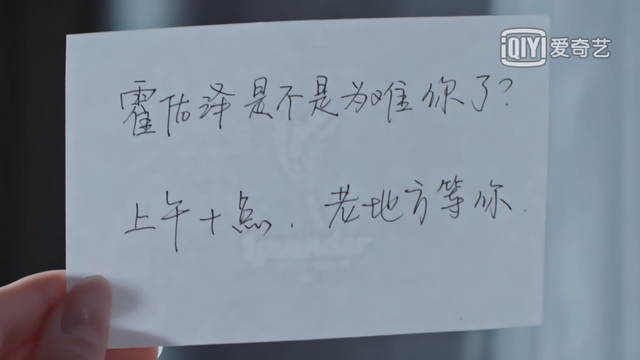 iQIYI 爱奇艺
霍佑泽是不是为难你了?
上午十点.老地方等你.